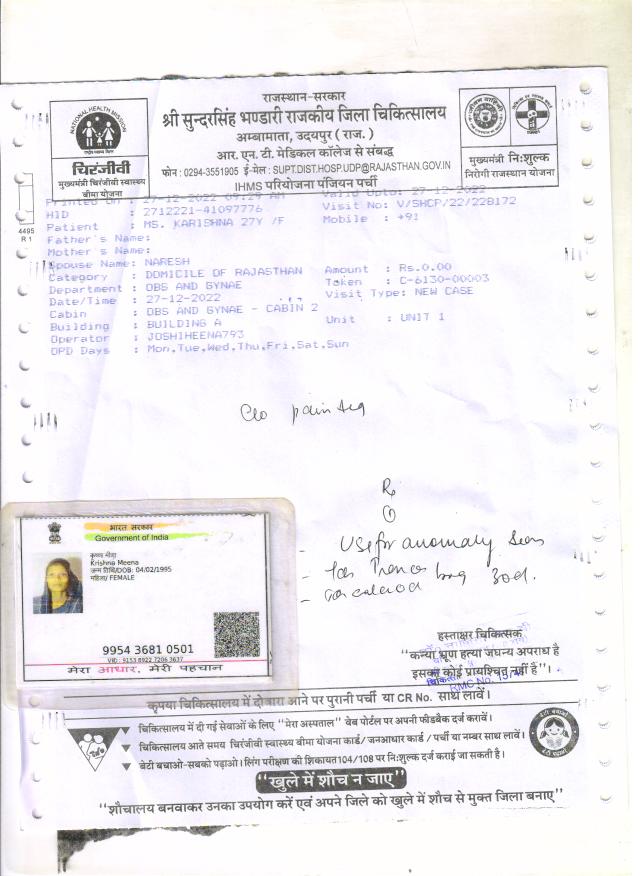 राजस्थान-सरकार
श्री सुन्दरसिंह भण्डारी राजकीय जिला चिकित्सालय
अम्बामाता, उदयपुर (राज.)
आर. एन. टी. मेडिकल कॉलेज से संबद्ध
फोन : 0294-3551905 ई-मेल : SUPT.DIST.HOSP.UDP@RAJASTHAN.GOV.IN
IHMS परियोजना पंजियन पर्ची
NATIONAL HEALTH MISSION
चिरंजीवी
मुख्यमंत्री चिरंजीवी स्वास्थ्य
बीमा योजना
मुख्यमंत्री निःशुल्क
निरोगी राजस्थान योजना
4495
R 1
Printed On : 27-12-2022 09:29 AM Valid Upto: 27-12-2022
HID : 2712221-41097776 Visit No: V/SHCP/22/228172
Patient : MS. KARISHNA 27Y /F Mobile : +91
Father's Name:
Mother's Name:
Spouse Name: NARESH
Category : DOMICILE OF RAJASTHAN Amount : Rs.0.00
Department : OBS AND GYNAE Token : C-6130-00003
Date/Time : 27-12-2022 Visit Type: NEW CASE
Cabin : OBS AND GYNAE - CABIN 2
Building : BUILDING A Unit : UNIT 1
Operator : JOSHIHEENA793
OPD Days : Mon,Tue,Wed,Thu,Fri,Sat,Sun
C/o pain
Rx
①
- USG for anomaly Scan
भारत सरकार
Government of India
कृष्णा मीणा
Krishna Meena
जन्म तिथि/DOB: 04/02/1995
महिला/ FEMALE
9954 3681 0501
VID : 9153 8922 7206 3637
मेरा आधार, मेरी पहचान
हस्ताक्षर चिकित्सक
"कन्या भ्रूण हत्या जघन्य अपराध है
इसका कोई प्रायश्चित नहीं है"।
RMC No.
कृपया चिकित्सालय में दोबारा आने पर पुरानी पर्ची या CR No. साथ लावें।
चिकित्सालय में दी गई सेवाओं के लिए "मेरा अस्पताल" वेब पोर्टल पर अपनी फीडबैक दर्ज करावें।
चिकित्सालय आते समय चिरंजीवी स्वास्थ्य बीमा योजना कार्ड / जनआधार कार्ड / पर्ची या नम्बर साथ लावें।
बेटी बचाओ-सबको पढ़ाओ। लिंग परीक्षण की शिकायत 104/108 पर निःशुल्क दर्ज कराई जा सकती है।
"खुले में शौच न जाए"
"शौचालय बनवाकर उनका उपयोग करें एवं अपने जिले को खुले में शौच से मुक्त जिला बनाए"